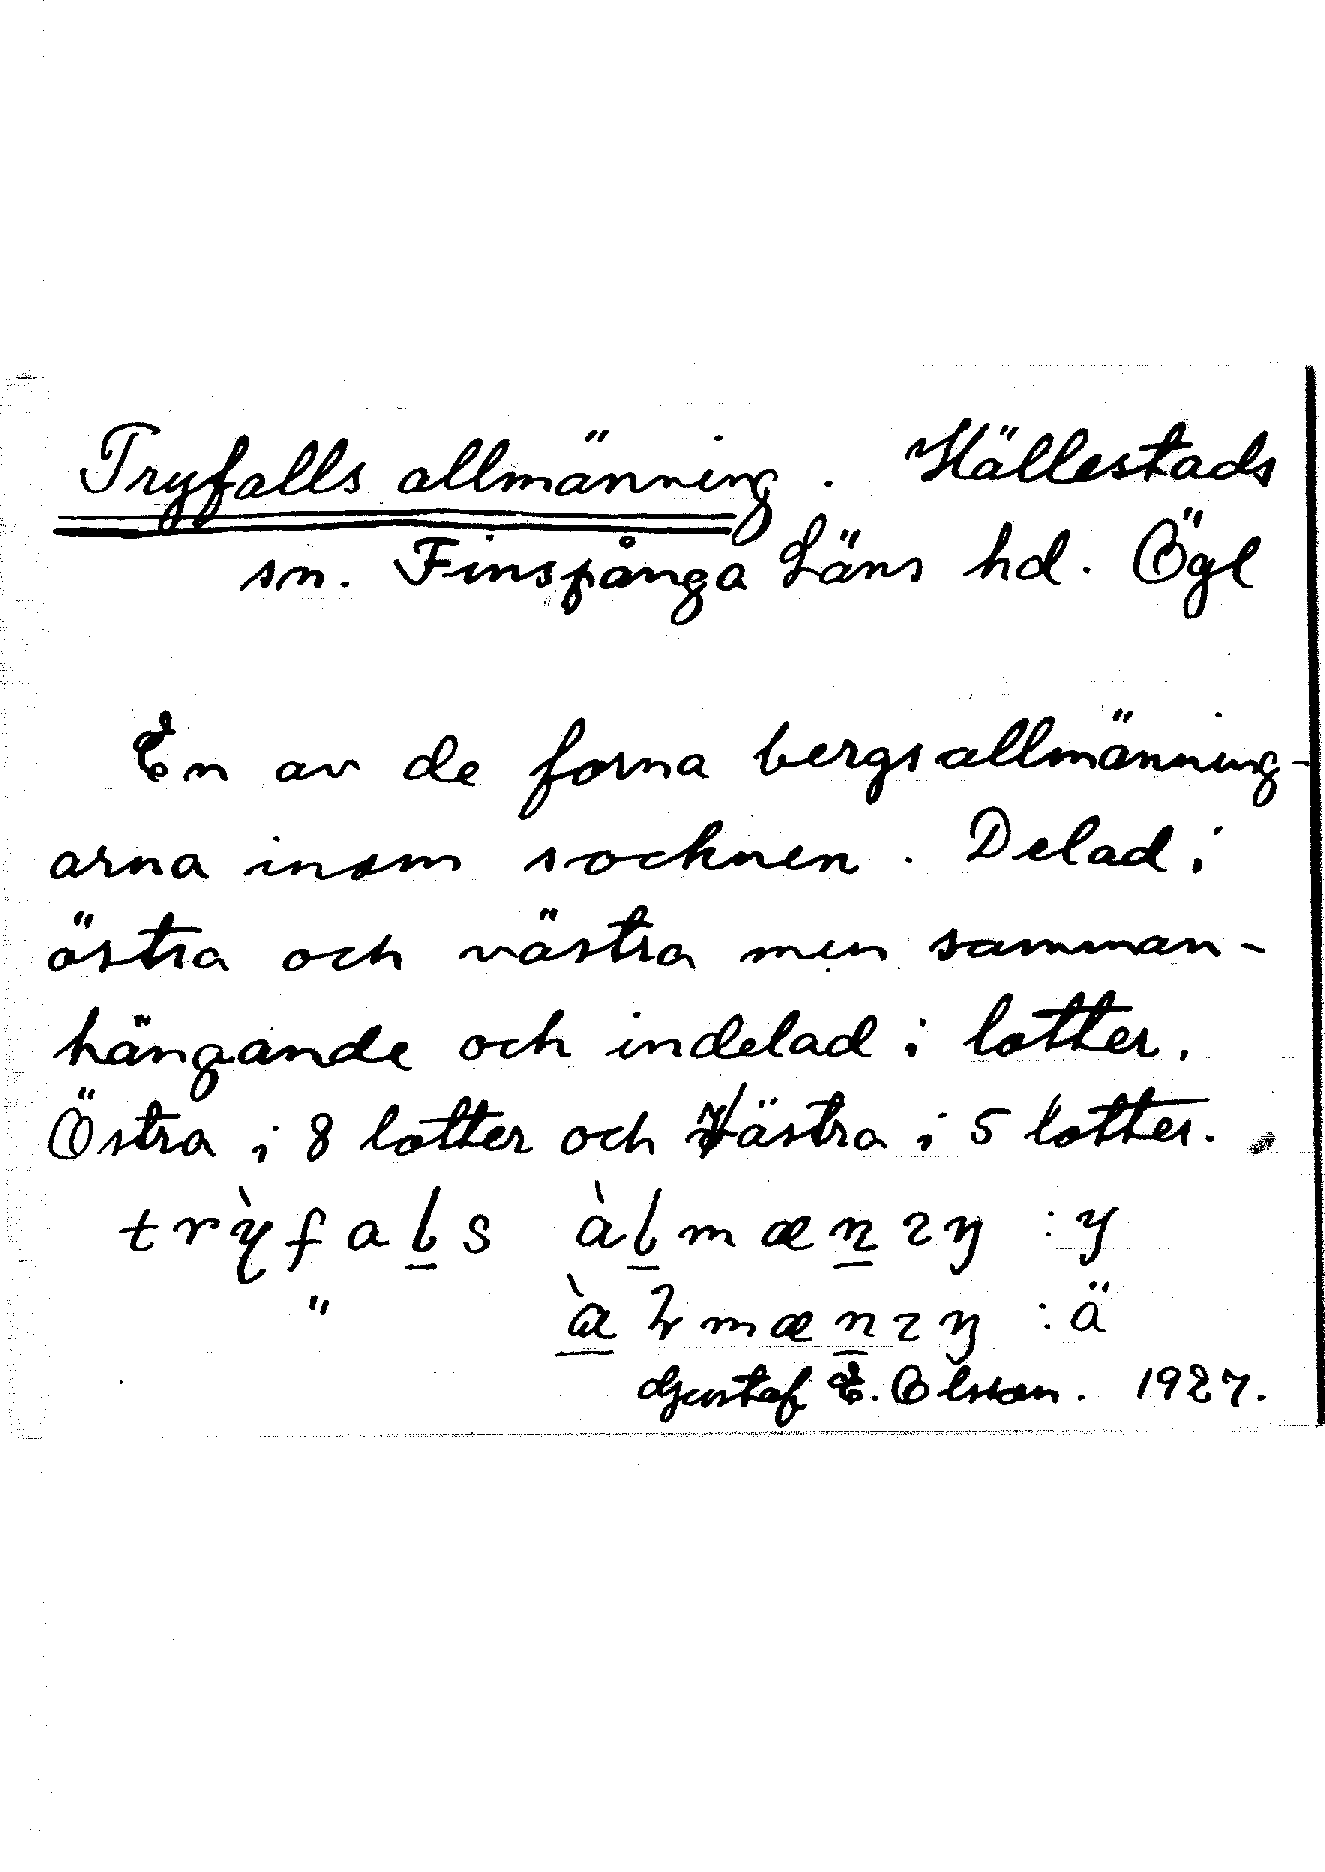 Tryfalls allmänning. Hällestads
sn. Finspånga Läns hd. Ögl
En av de forna bergsallmänning-
arna inom socknen. Delad i
östra och västra men samman-
hängande och indelad i lotter.
Östra i 8 lotter och Västra i 5 lotter.
:y
" :ä
Gustaf E. Olsson. 1927.